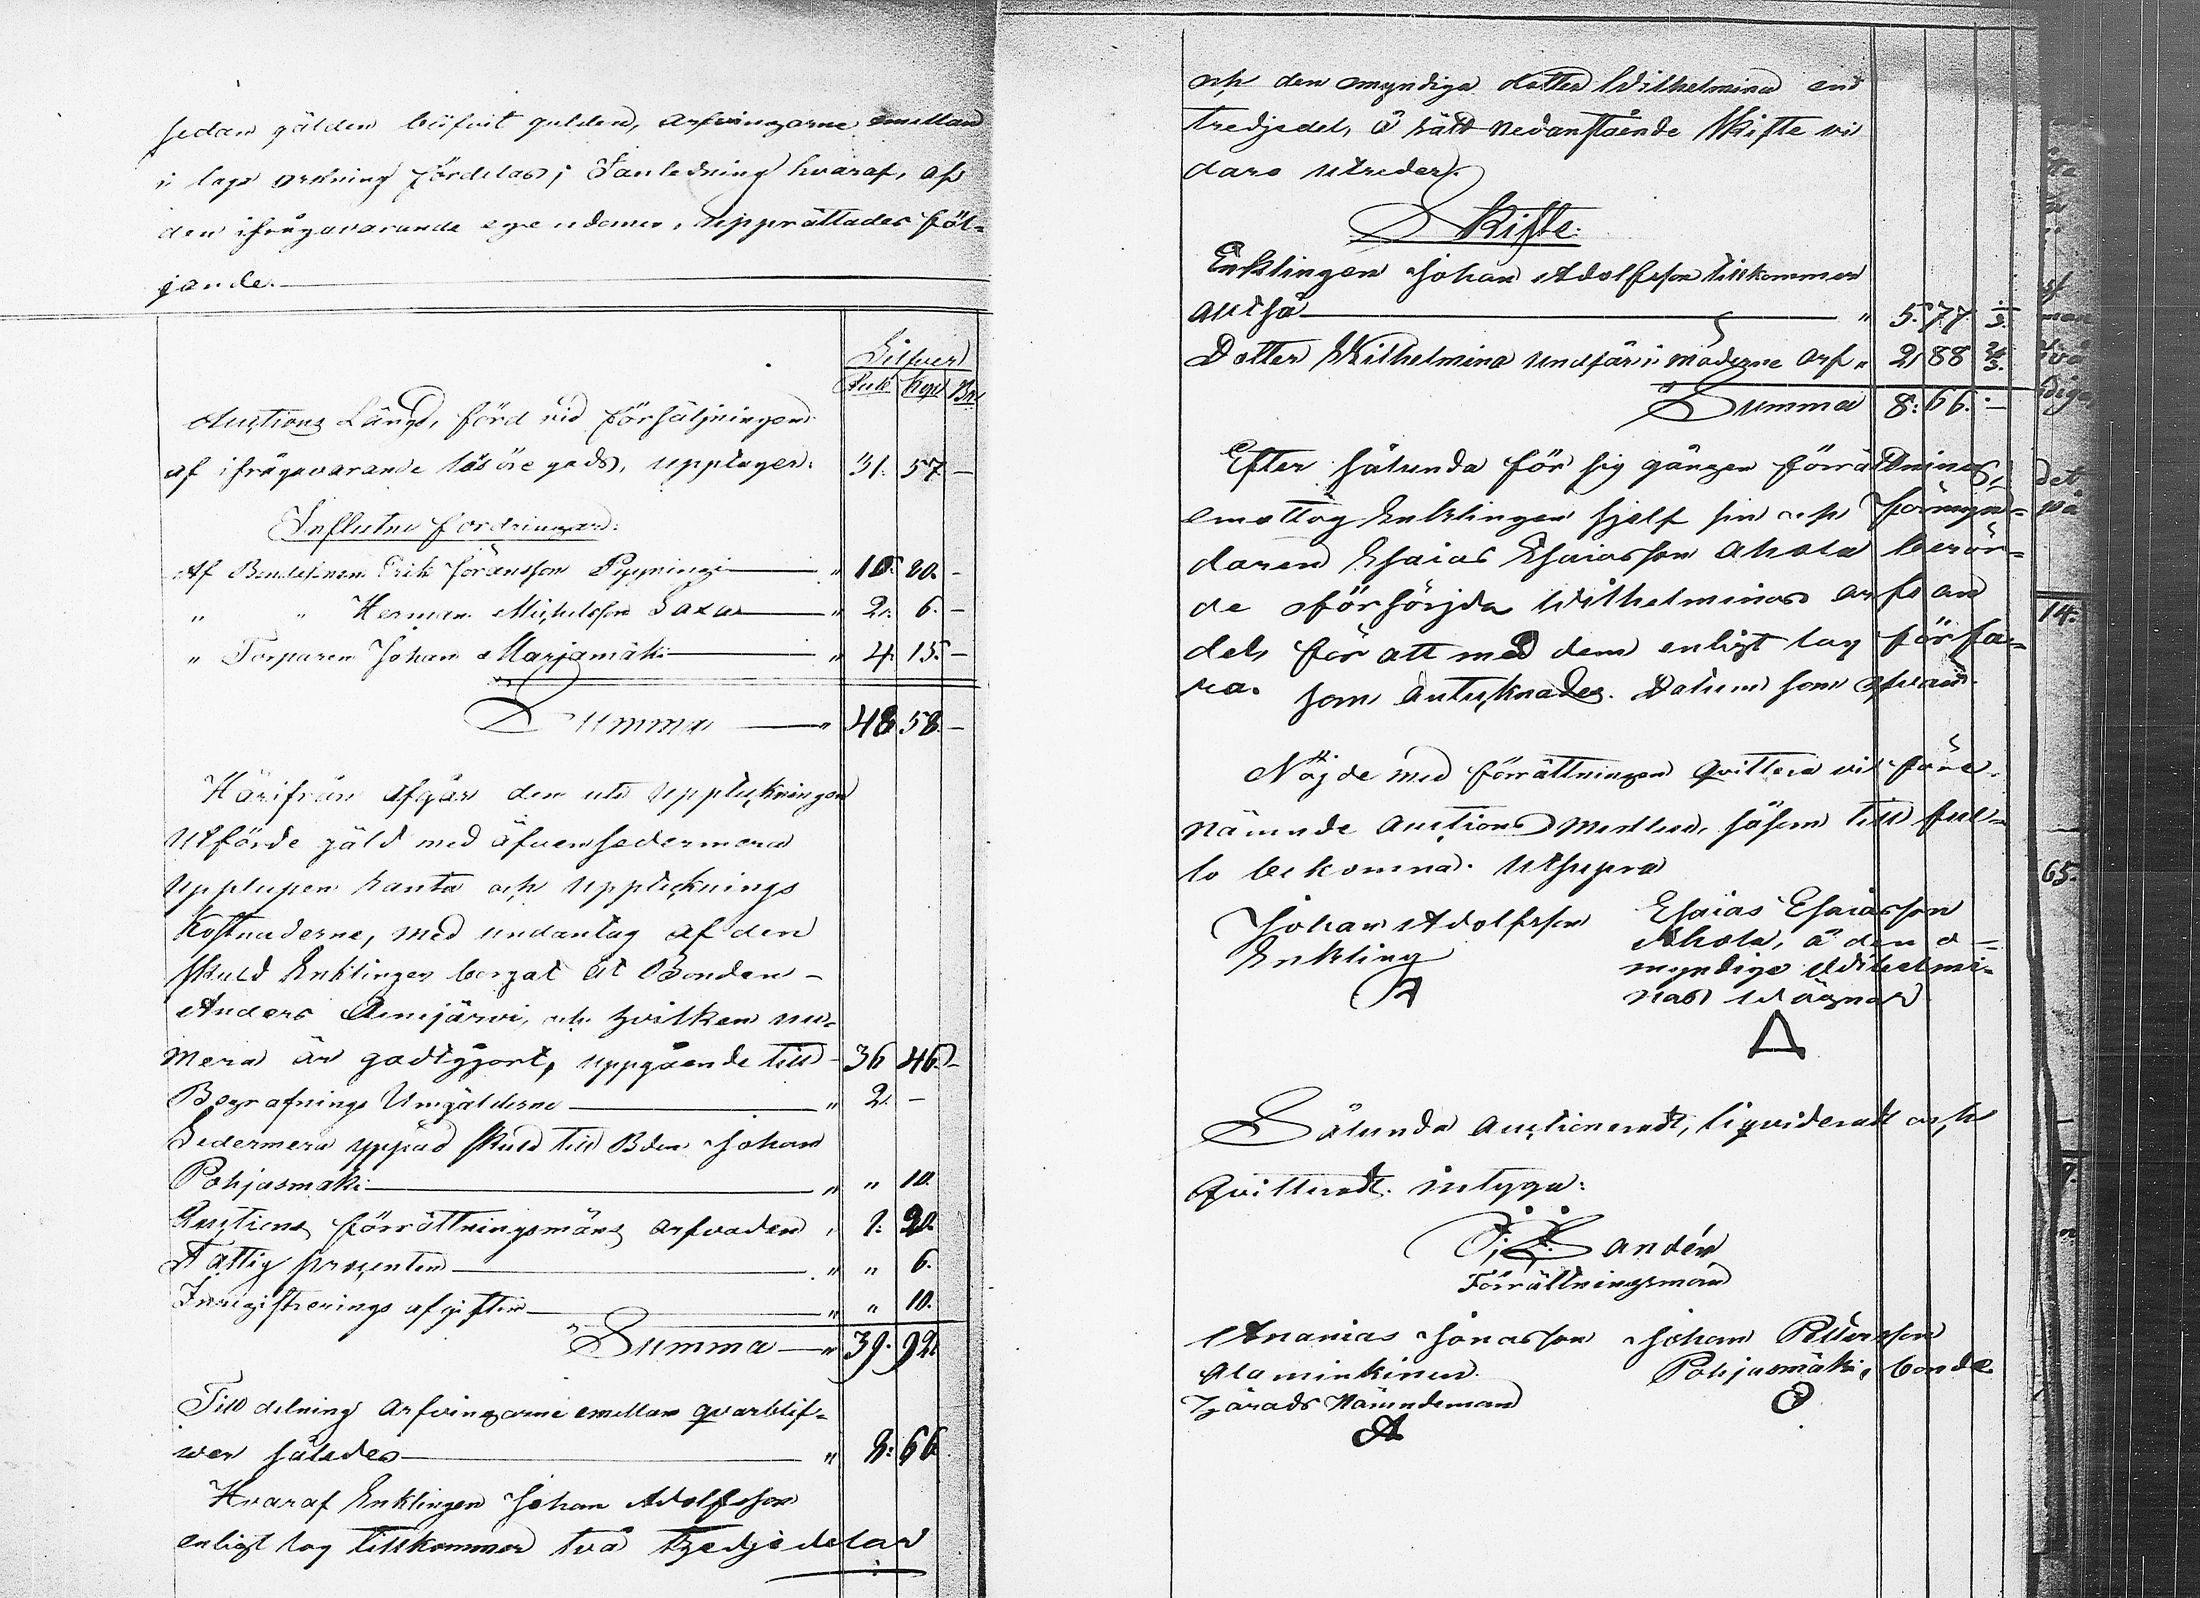 sedan gälden blifvit gulden, arfvingarne emellan
i laga ordning fördelas; I anledning hvaraf, af
den ifrågavarande egendomen, upprättades föl-
jande.
Silfver
Rub Kop Br
Auctions Längd, förd vid försäljningen
af ifrågavarande lösöre gods, upptager. 31. 57 –
Influtne fordringar:
Af Bondesonen Erik Göransson Pyyningi " 10. 80. –
" " Herman Michelsson Saxa " 2. 6. –
" Torparen Johan Marjamäki " 4. 15. –
Summa " 48 58 –
Härifrån afgår den vid uppteckningen
utförde gäld med äfven sedermera
upplupen ränta och upptecknings
kostnaderne, med undantag af den
skuld Enklingen borgat åt Bonden
Anders Ainijärvi, och hvilken nu-
mera är godtgjort, uppgående till 36 46. –
Begrafnings Umgälderne " 2. –
Sedermera yppad skuld till Bden Johan
Pohjasmäki " " 10.
Auctions förrättningsmäns arfvoden " 1. 20.
Fattig procenten " " 6.
Inregistrerings afgiften " " 10.
Summa " 39. 92.
Till delning arfvingarne emellan qvarblif-
wer således " 8: 66
Hvaraf Enklingen Johan Adolfsson
enligt lag tillkommer två tredjedelar
och den omyndiga dotter Wilhelmina en
tredjedel, å sätt nedanstående Skifte vi
dare utreder.
Skifte.
Enklingen Johan Adolfsson tillkommer
altså " 5. 77 1/3.
Dotter Wilhelmina undfår i möderne arf " 2. 88 2/3.
Summa 8: 66. –
Efter sålunda för sig gången förrättning,
emottog Enklingen sjelf sin och förmyn-
daren Esaias Esaiasson Ahola berör-
de oförsörjda Wilhelminas arfs an
del, för att med dem enligt lag förfa-
ra. Som antecknades. Datum som ofvan.
Nöjde med förrättningen qvittera vi före-
nämnde Auctions medlen, såsom till ful-
lo bekomna. Utsupra
Johan Adolfsson
Enkling
Esaias Esaiasson
Ahola, å den o-
myndige Wilhelmi-
nas wägnar
Sålunda auctioneradt, liqvideradt och
qvitteradt. intyga:
Sandén
Förrättningsman
Ananias Jonasson
Alaminkinen
Härads Nämndeman
Johan Pettersson
Pohjasmäki, bonde
det
14.
65.